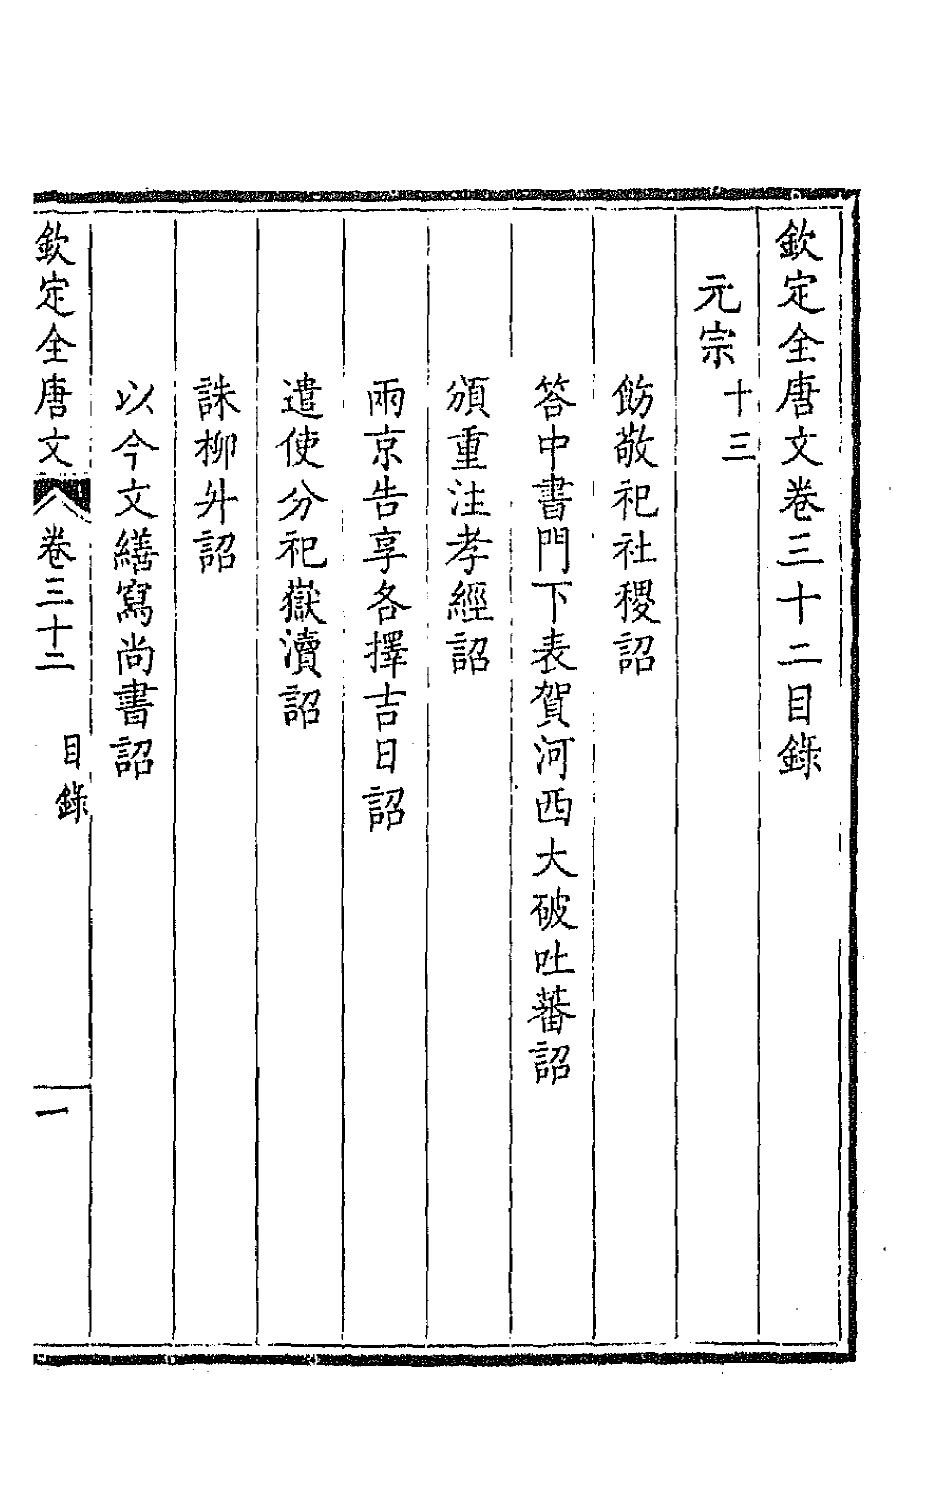 欽定全唐文卷三十二目錄
元宗十三
飭敬祀社稷詔
答中書門下表賀河西大破吐蕃詔
頒重注孝經詔
兩京告享各擇吉日詔
遣使分祀嶽瀆詔
誅柳升詔
以今文繕寫尚書詔
欽定全唐文 卷三十二 目錄 一